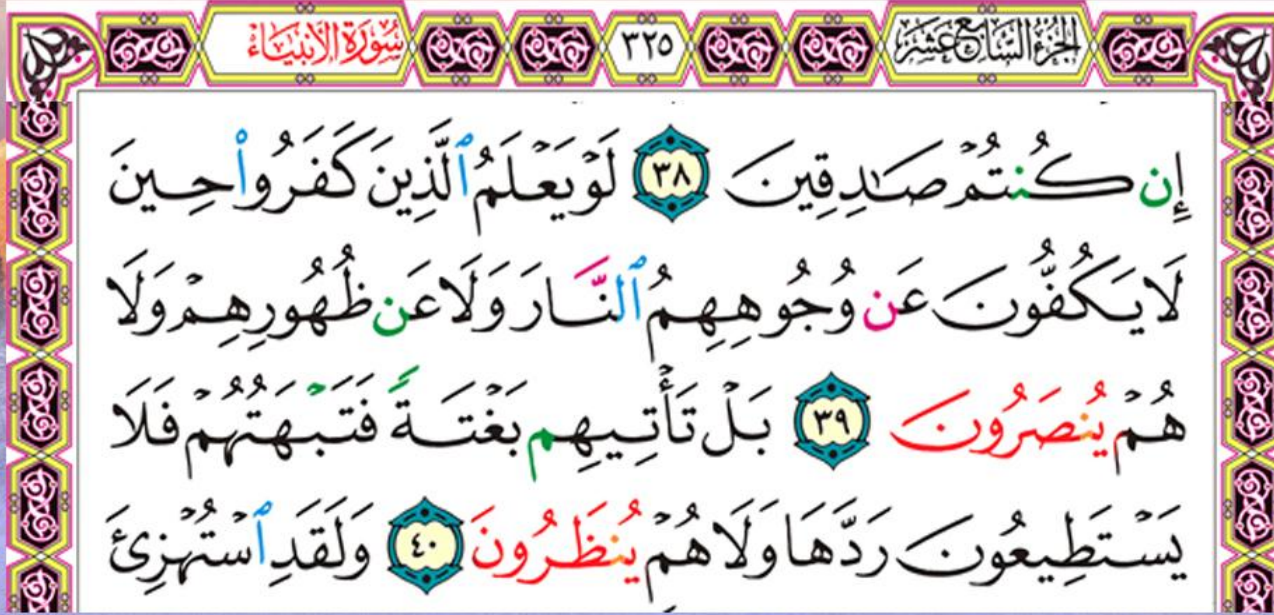 الجزء السابع عشر ٣٢٥ سورة الأنبياء
إِن كُنتُمْ صَٰدِقِينَ ٣٨ لَوْ يَعْلَمُ ٱلَّذِينَ كَفَرُوا۟ حِينَ
لَا يَكُفُّونَ عَن وُجُوهِهِمُ ٱلنَّارَ وَلَا عَن ظُهُورِهِمْ وَلَا
هُمْ يُنصَرُونَ ٣٩ بَلْ تَأْتِيهِم بَغْتَةً فَتَبْهَتُهُمْ فَلَا
يَسْتَطِيعُونَ رَدَّهَا وَلَا هُمْ يُنظَرُونَ ٤٠ وَلَقَدِ ٱسْتُهْزِئَ